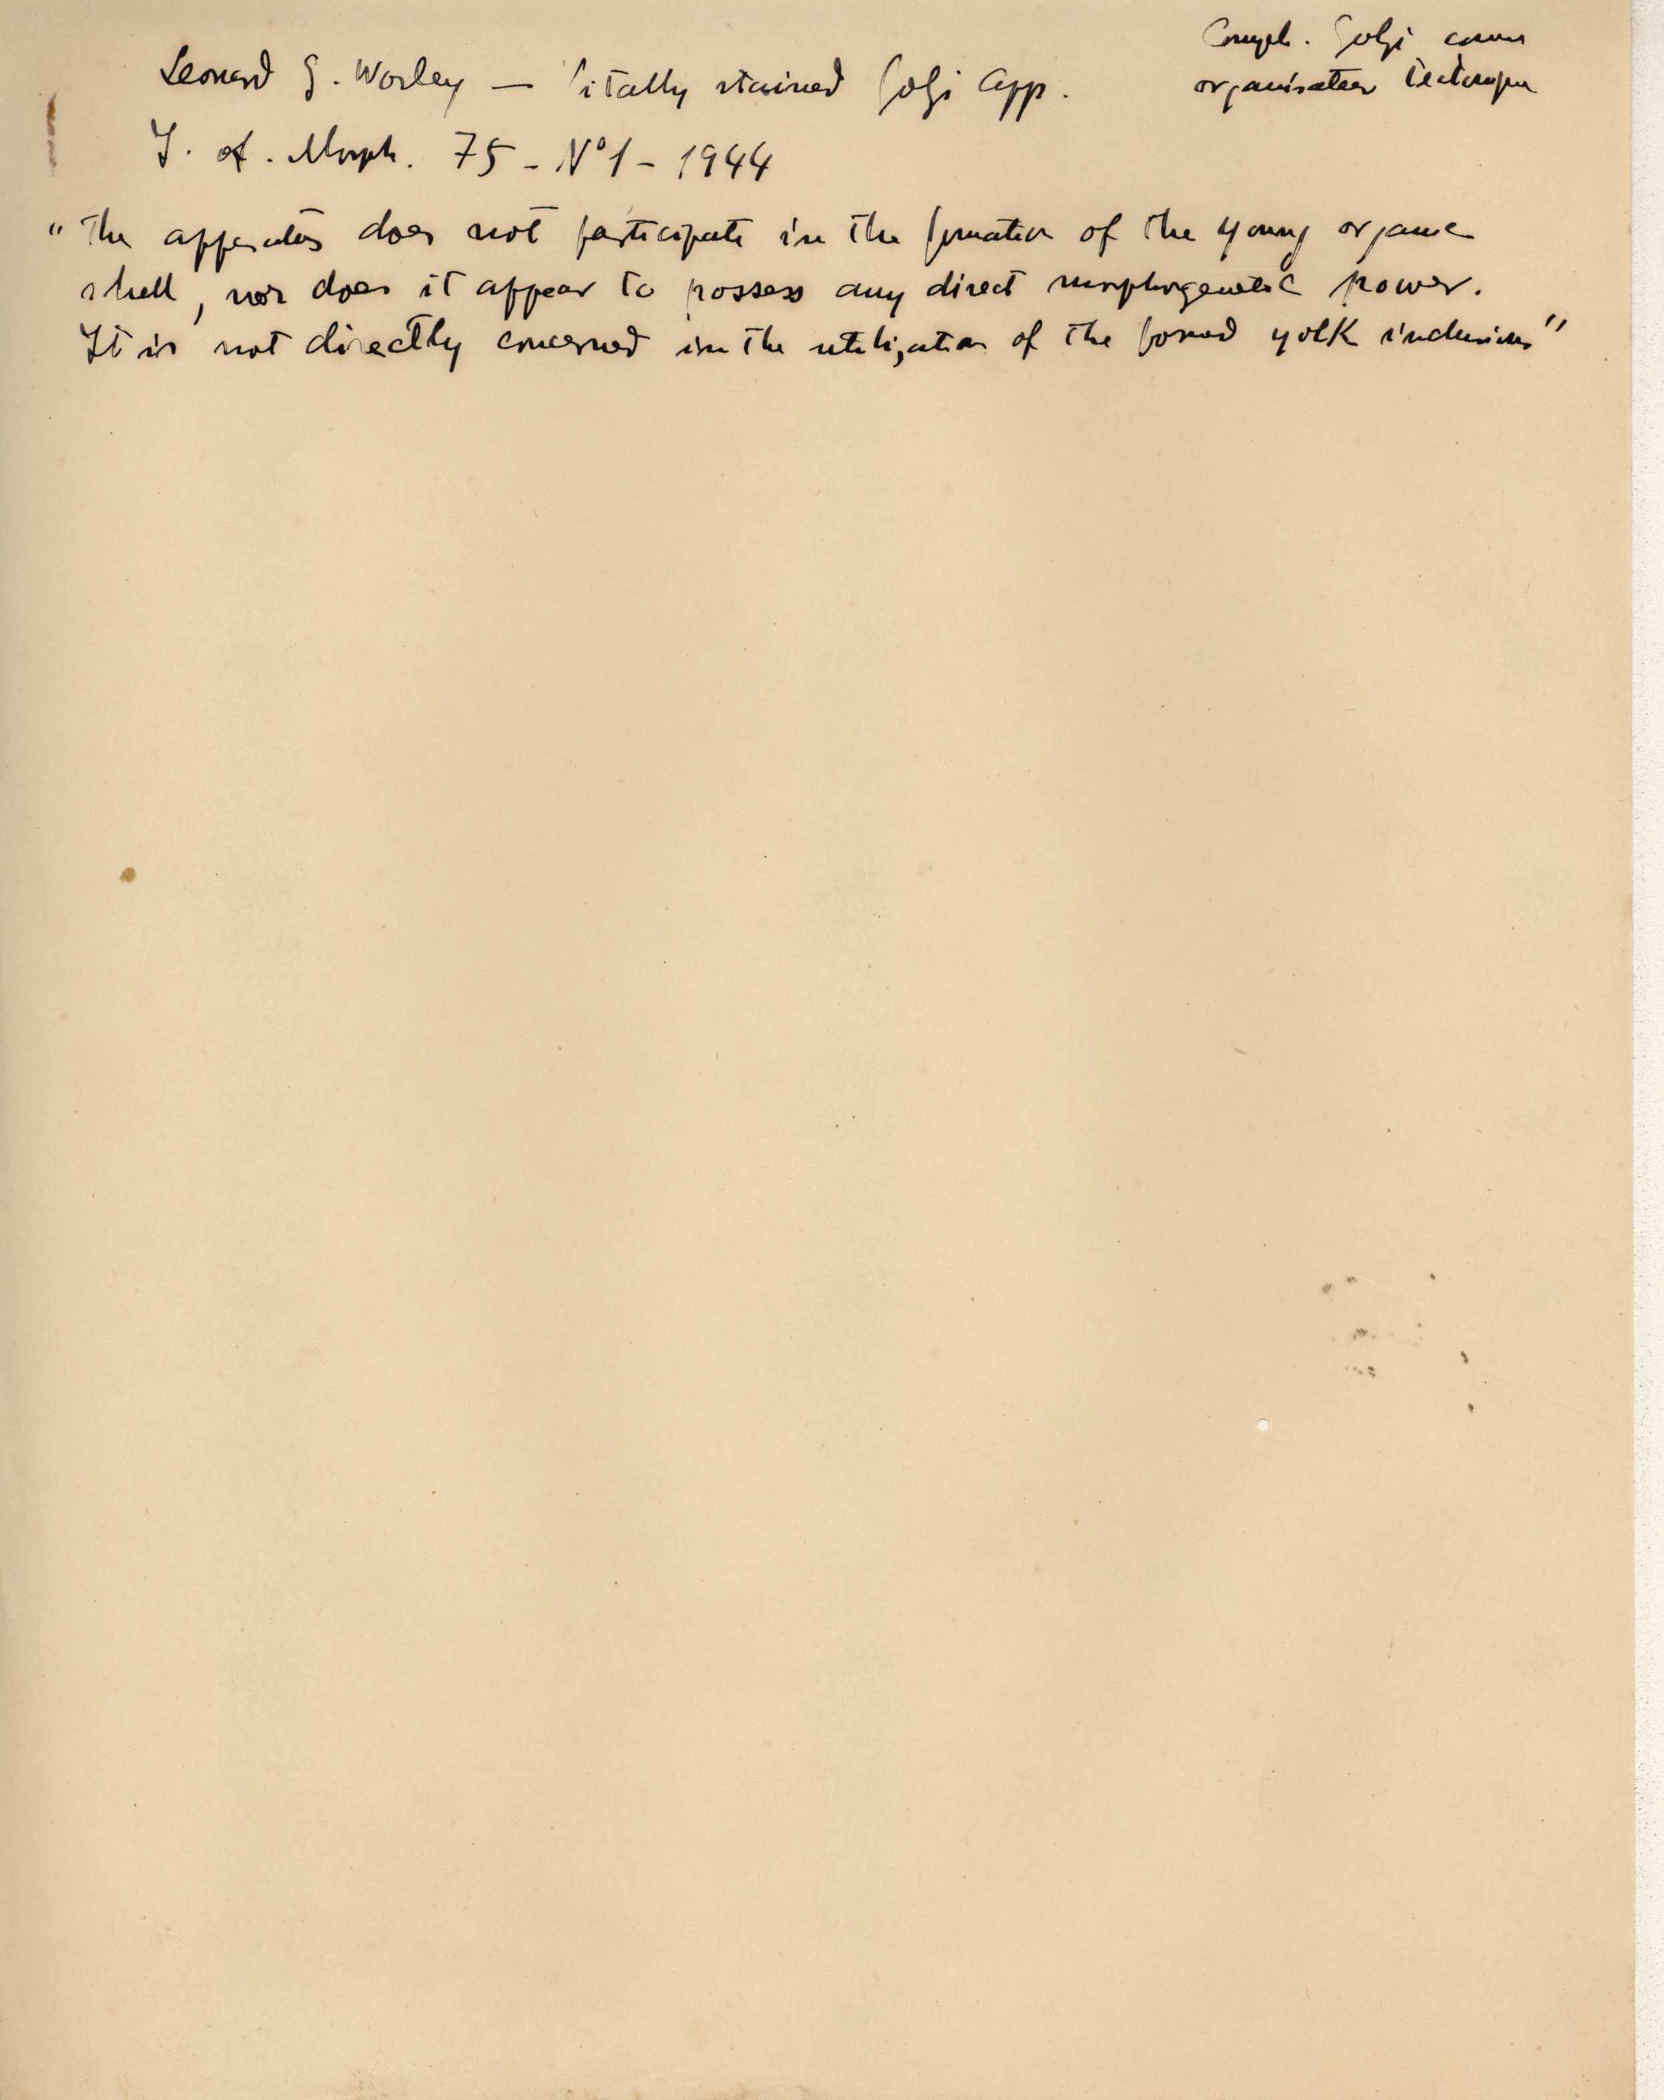 Compl. Golgi comme
organisateur tectonique
Leonard G. Worley — Vitally stained Golgi app.
J. of. Morph. 75 - N°1 - 1944
"The apparatus does not participate in the formation of the young organic
shell, nor does it appear to possess any direct morphogenetic power.
It is not directly concerned in the utilization of the formed yolk inclusions"